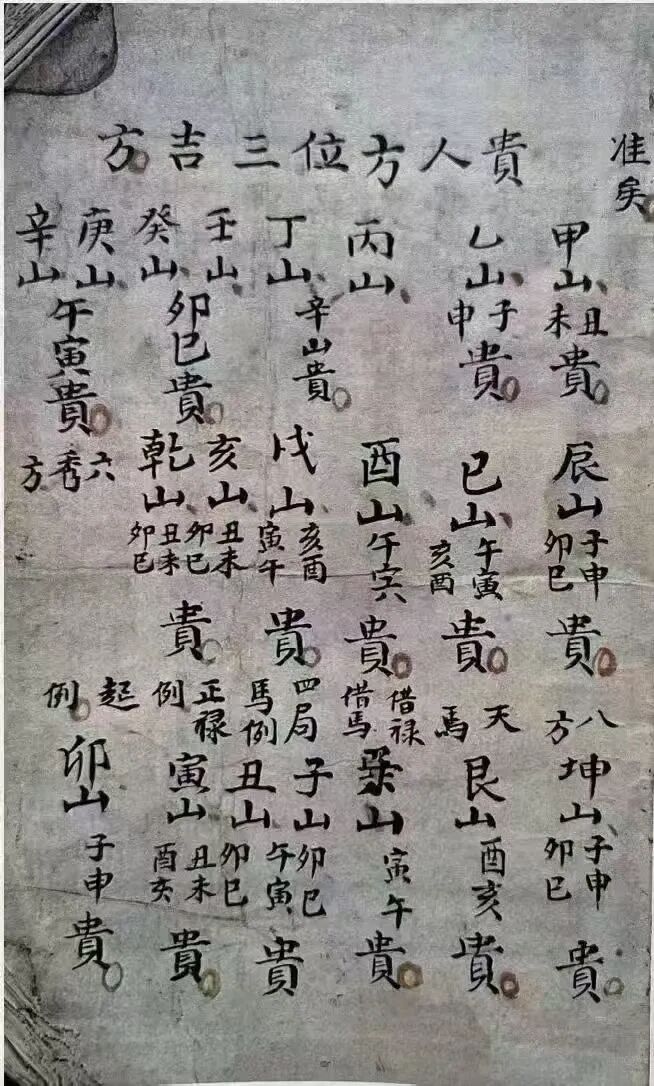 准矣
貴人方位三吉方
甲山丑未貴
乙山子申貴
丙山
丁山辛山貴
壬山癸山卯巳貴
庚山辛山午寅貴
辰山子申卯巳貴
巳山午寅亥酉貴
酉山午寅貴
戌山亥酉寅午貴
亥山丑未卯巳
乾山丑未卯巳
貴
六秀方
八方
天馬
借禄借馬
四局馬例
正禄例
起例
坤山子申卯巳貴
艮山酉亥貴
山寅午貴
子山卯巳午寅
丑山卯巳
貴
寅山丑未酉亥貴
卯山子申貴